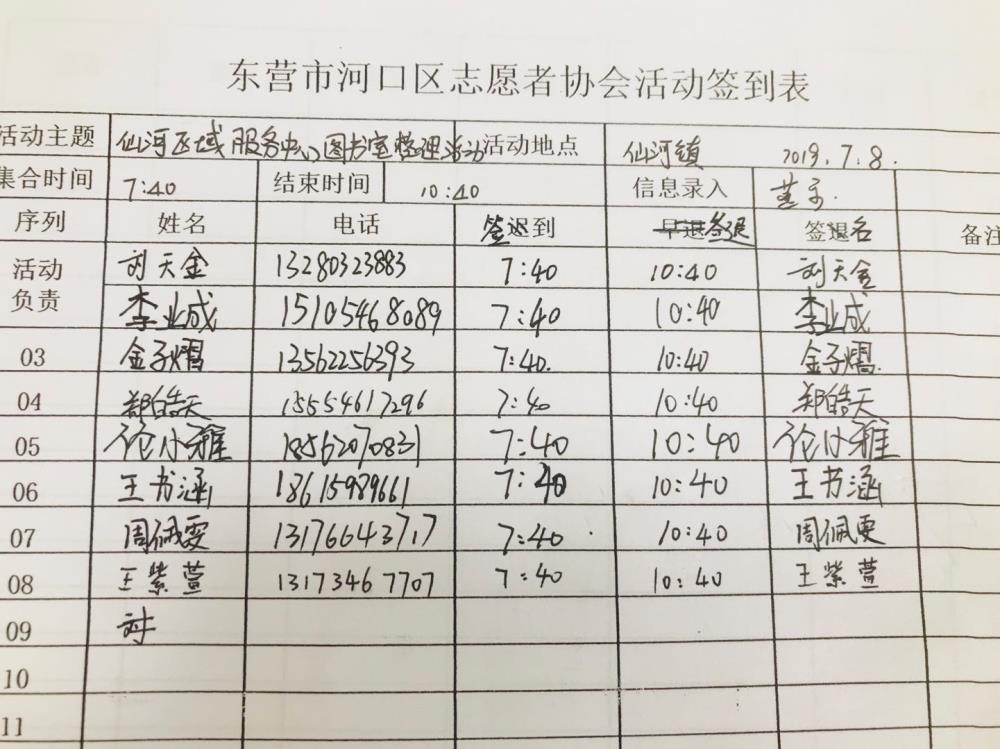 东营市河口区志愿者协会活动签到表
活动主题 仙河区域服务中心图书室整理活动 活动地点 仙河镇 2019.7.8.
集合时间 7:40 结束时间 10:40 信息录入
序列 姓名 电话 签到 签退 签退名 备注
活动负责 刘天金 13280323883 7:40 10:40 刘天金
李业成 15105468089 7:40 10:40 李业成
03 金子熠 13562256393 7:40. 10:40 金子熠
04 郑皓天 15554617296 7:40 10:40 郑皓天
05 伦小雅 18562070831 7:40 10:40 伦小雅
06 王书涵 18615989661 7:40 10:40 王书涵
07 周佩雯 13176643717 7:40 10:40 周佩雯
08 王紫萱 13173467707 7:40 10:40 王紫萱
09
10
11